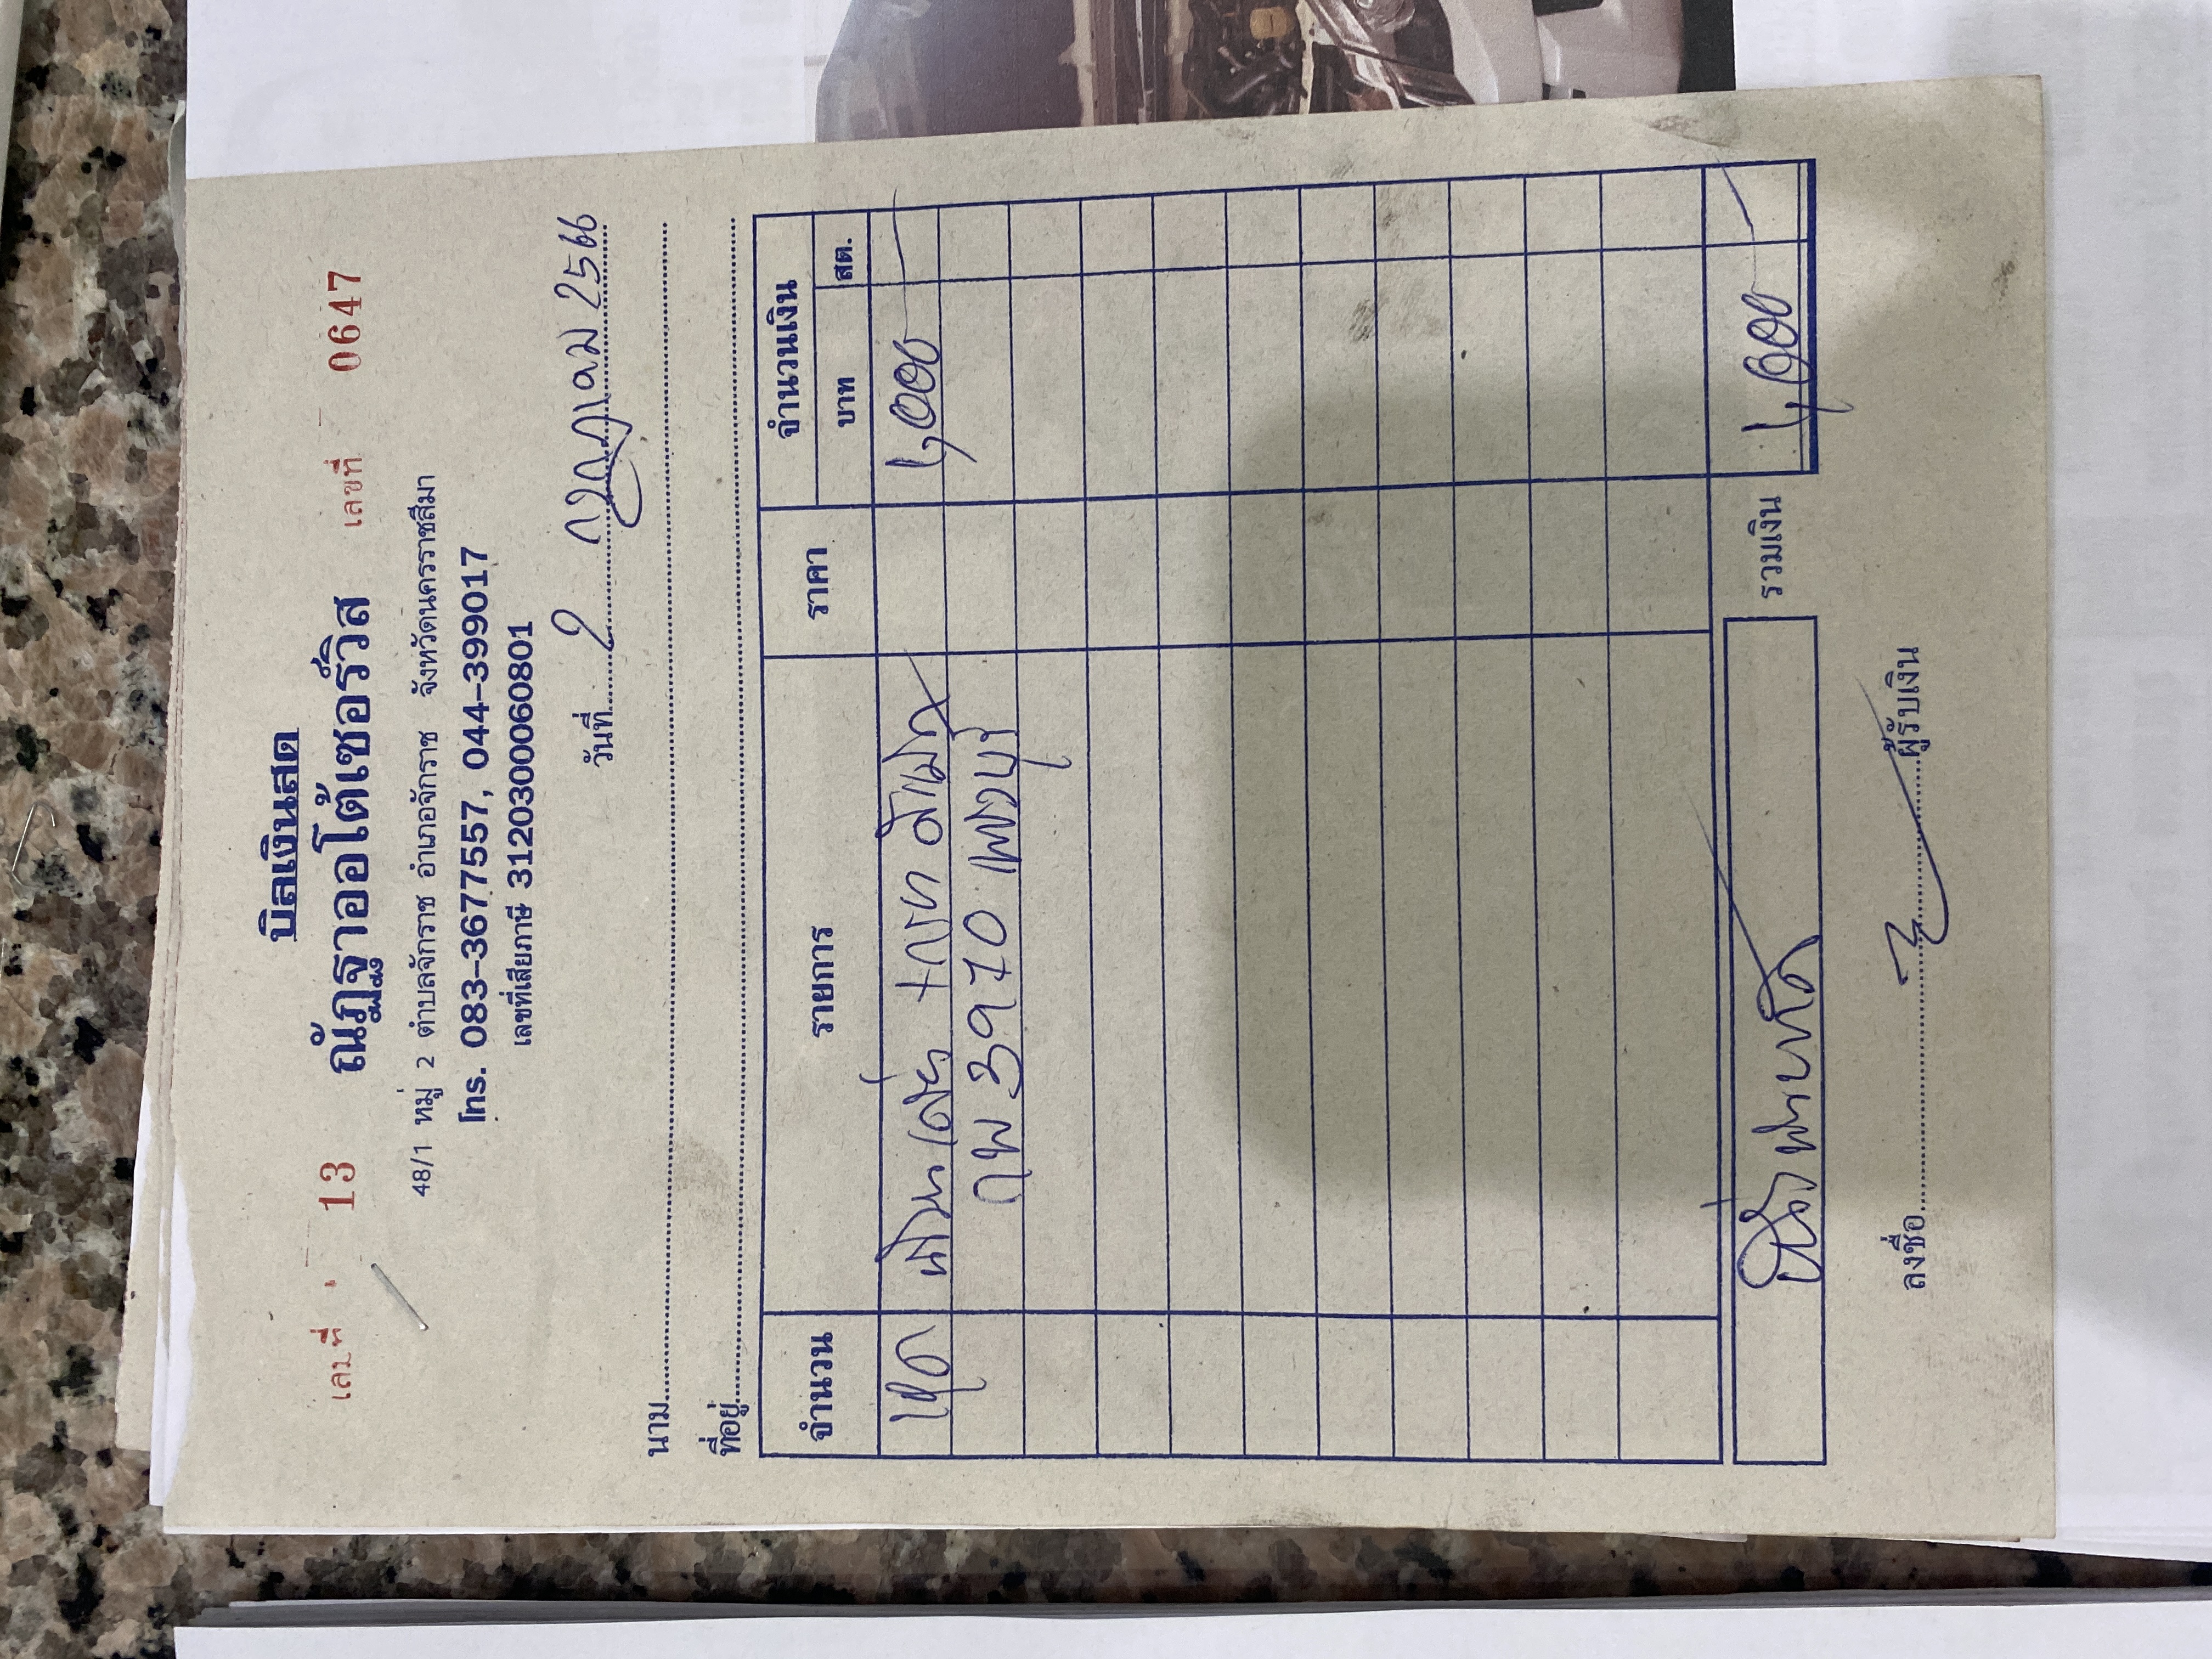 บิลเงินสด
เล่มที่ 13 ณัฏฐาออโต้เซอร์วิส เลขที่ 0647
48/1 หมู่ 2 ตำบลจักราช อำเภอจักราช จังหวัดนครราชสีมา
โทร. 083-3677557, 044-399017
เลขที่เสียภาษี 3120300060801
วันที่ 2 กรกฎาคม 2566
นาม
ที่อยู่
จำนวน รายการ ราคา จำนวนเงิน
บาท สต.
4,000 -
กพ 3970 เพชรบุรี
สี่พันบาทถ้วน รวมเงิน 4,000 -
ลงชื่อ ผู้รับเงิน